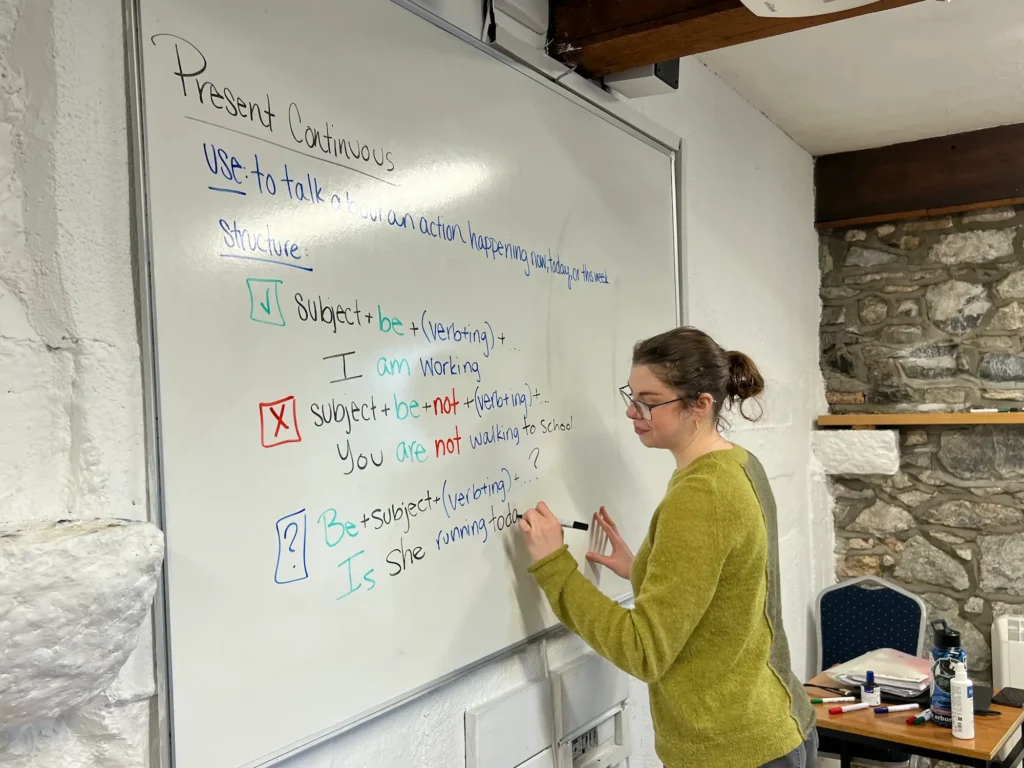 Present Continuous
Use: to talk about an action happening now, today, or this week
Structure:
√ subject + be + (verb+ing) + ...
I am working
X subject + be + not + (verb+ing) + ...
You are not walking to school.
? Be + subject + (verb+ing) + ... ?
Is she running toda